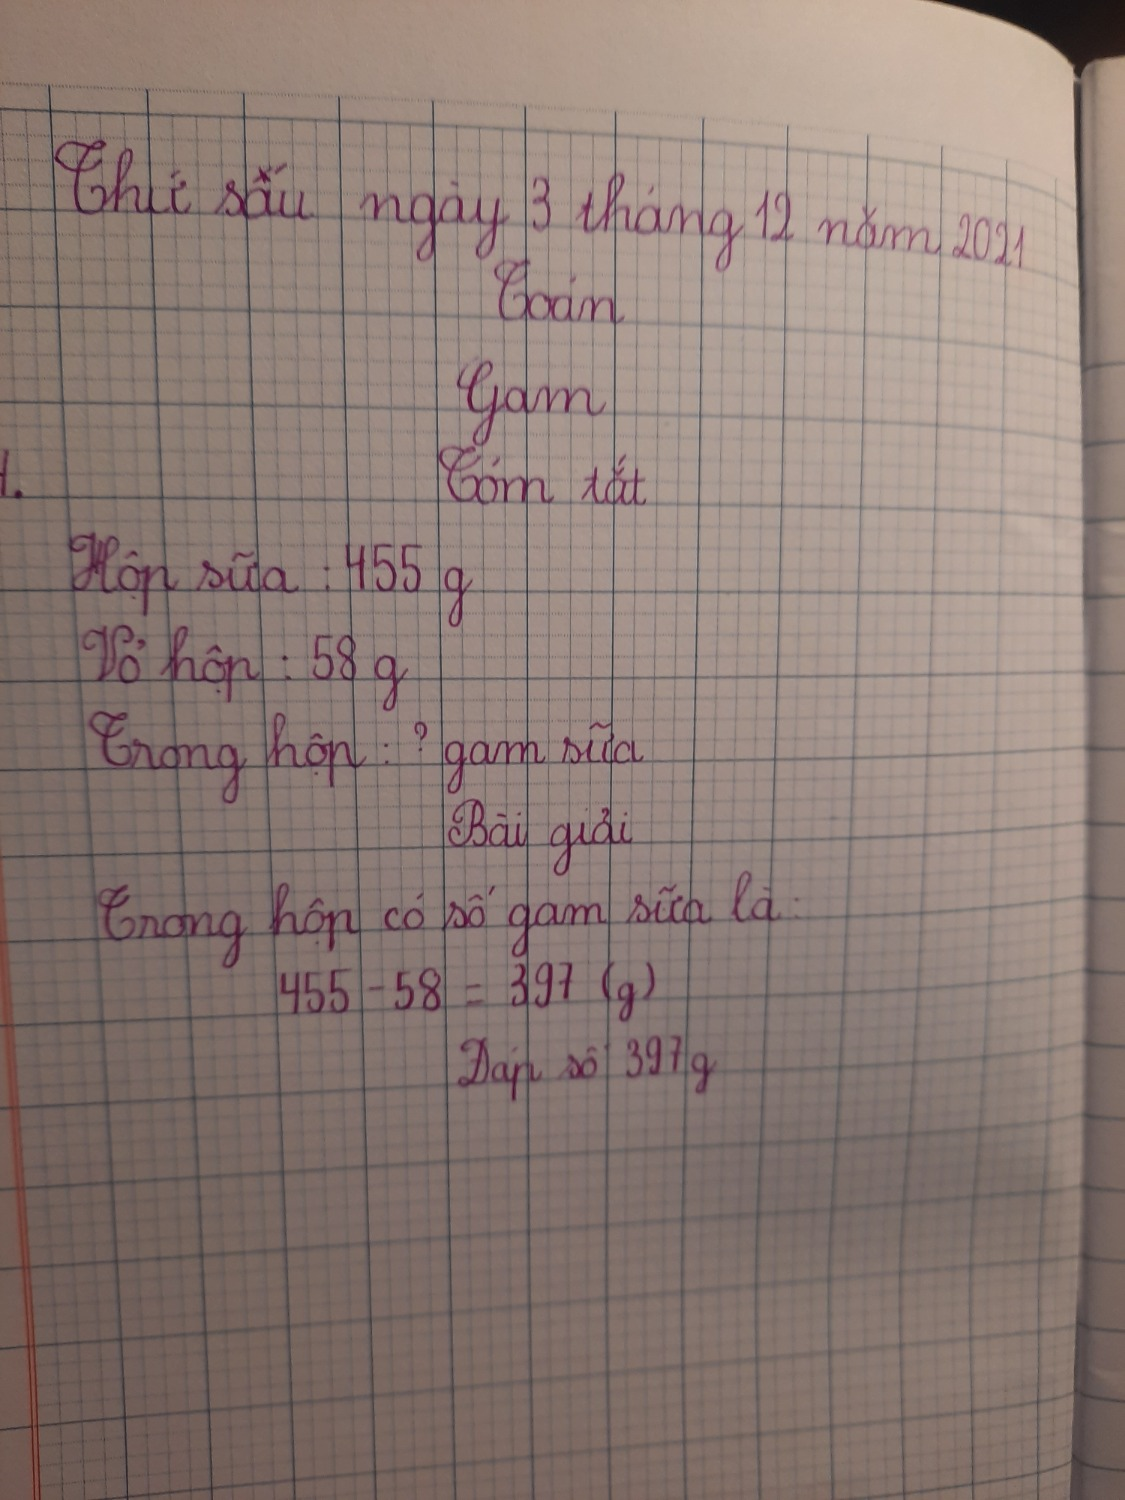 Thứ sáu ngày 3 tháng 12 năm 2021
Toán
Gam
1.
Tóm tắt
Hộp sữa : 455 g
Vỏ hộp : 58 g
Trong hộp : ? gam sữa
Bài giải
Trong hộp có số gam sữa là:
455 - 58 = 397 (g)
Đáp số 397g